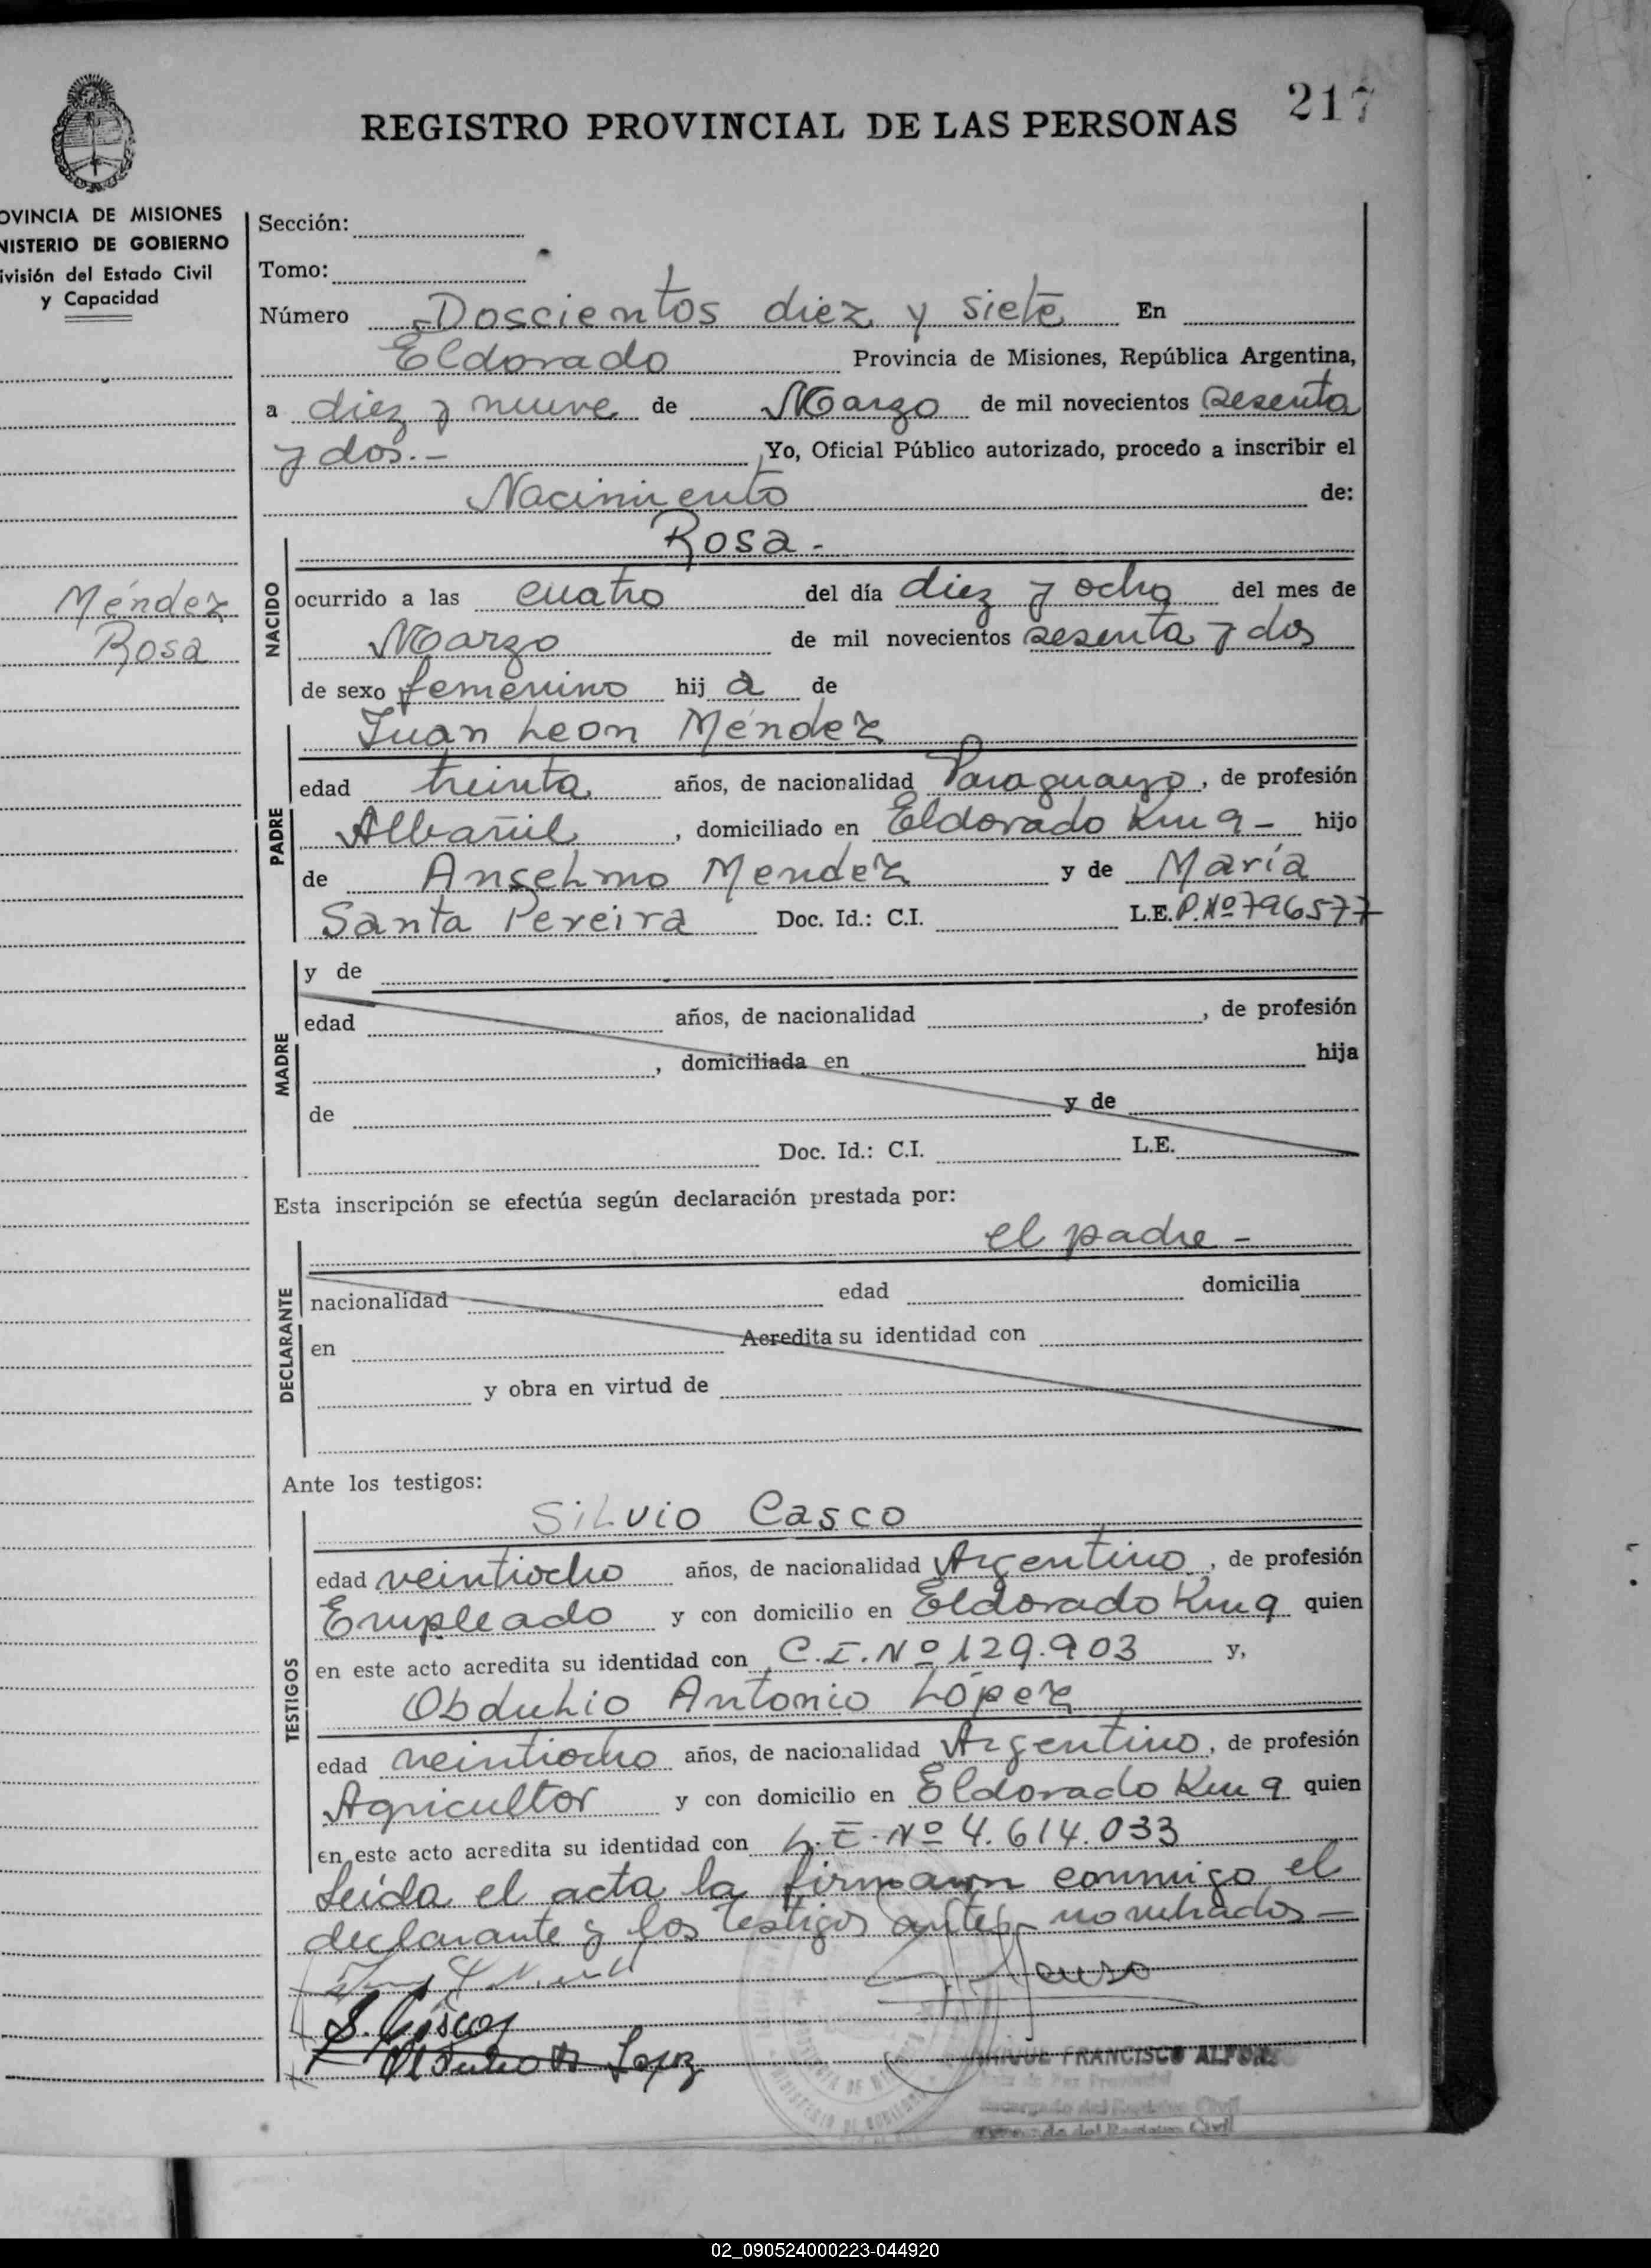 217
REGISTRO PROVINCIAL DE LAS PERSONAS
OVINCIA DE MISIONES
NISTERIO DE GOBIERNO
ivisión del Estado Civil
y Capacidad
Méndez
Rosa
Sección:
Tomo:
Número Doscientos diez y siete En
Eldorado Provincia de Misiones, República Argentina,
a diez y nueve de Marzo de mil novecientos sesenta
y dos.- Yo, Oficial Público autorizado, procedo a inscribir el
Nacimiento de:
NACIDO
Rosa -
ocurrido a las cuatro del día diez y ocho del mes de
Marzo de mil novecientos sesenta y dos
de sexo femenino hij a de
PADRE
Juan Leon Méndez
edad treinta años, de nacionalidad Paraguayo, de profesión
Albañil, domiciliado en Eldorado Km 9 - hijo
de Anselmo Mendez y de María
Santa Pereira Doc. Id.: C.I. L.E. P.Nº 796577
MADRE
y de
edad años, de nacionalidad , de profesión
, domiciliada en hija
de y de
Doc. Id.: C.I. L.E.
Esta inscripción se efectúa según declaración prestada por:
el padre -
DECLARANTE
nacionalidad edad domicilia
en Acredita su identidad con
y obra en virtud de
Ante los testigos:
TESTIGOS
Silvio Casco
edad veintiocho años, de nacionalidad Argentino, de profesión
Empleado y con domicilio en Eldorado Km 9 quien
en este acto acredita su identidad con C.I. Nº 129.903 y,
Obdulio Antonio López
edad veintiocho años, de nacionalidad Argentino, de profesión
Agricultor y con domicilio en Eldorado Km 9 quien
en este acto acredita su identidad con L.E. Nº 4.614.033
Leída el acta la firmaron conmigo el
declarante y los testigos antes nombrados -
S. Casco
Obdulio A. Lopez
FRANCISCO ALFONSO
Encargado del Registro Civil
02_090524000223-044920